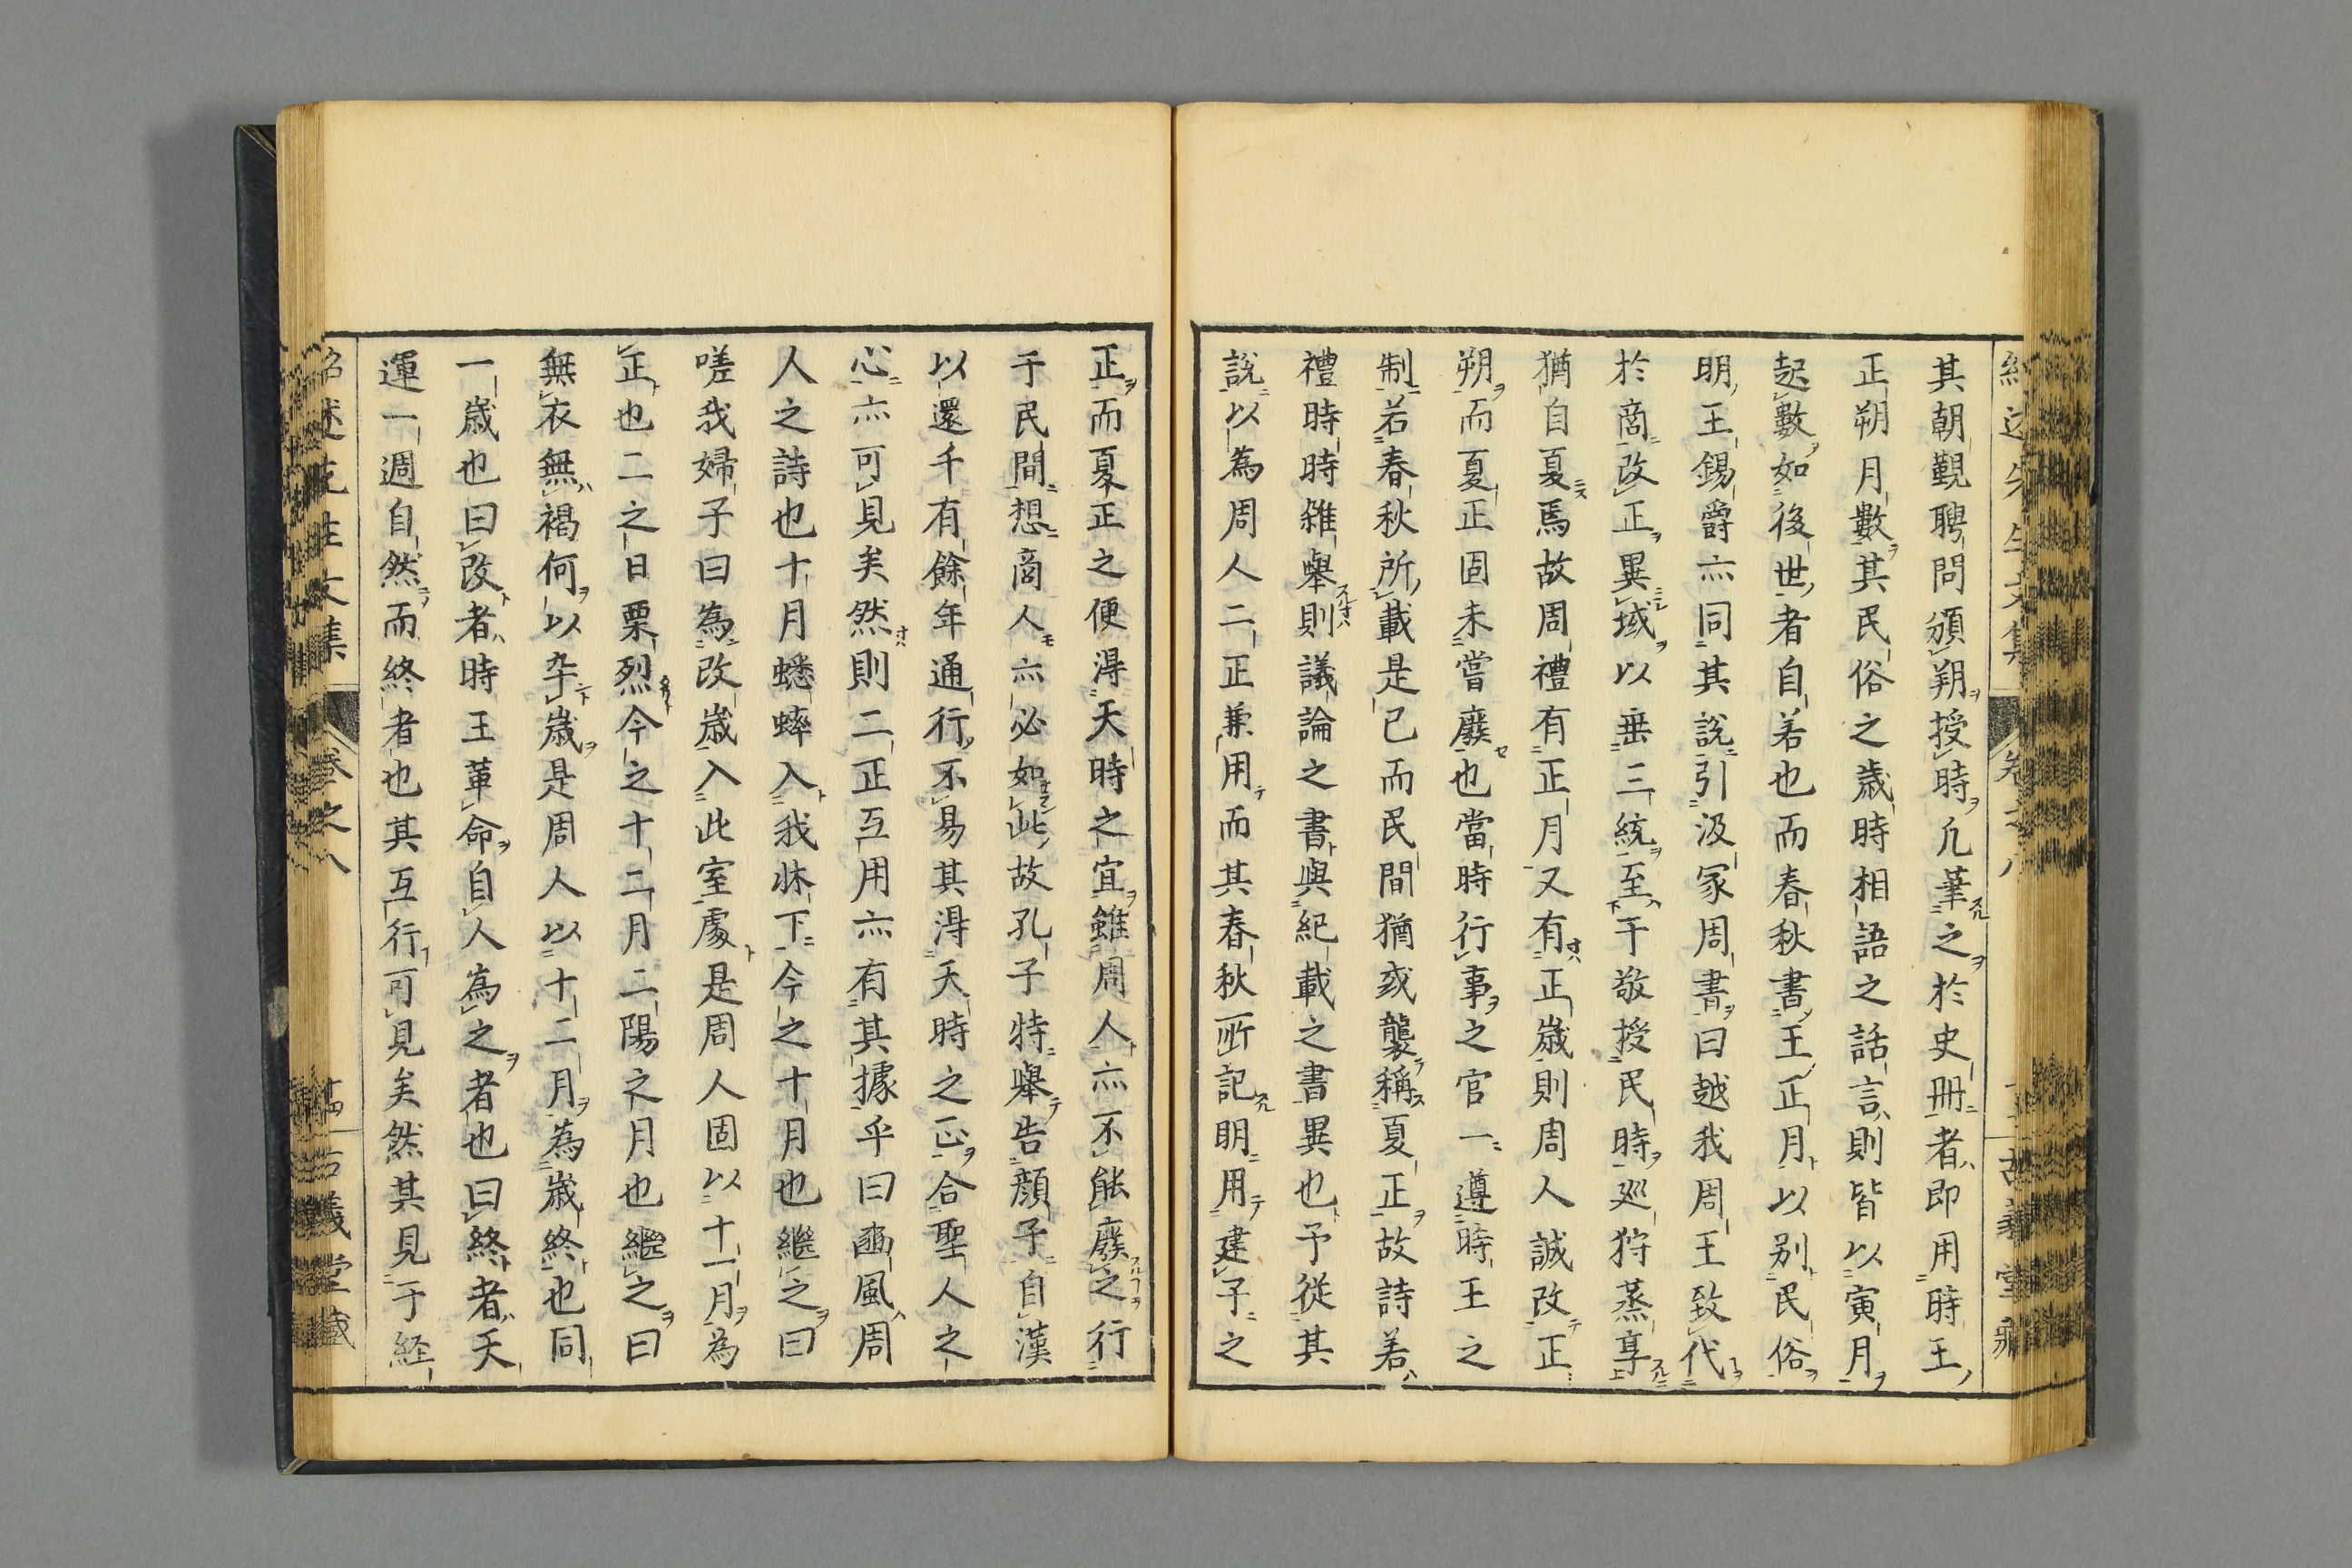 其朝覲聘問頒朔授時凢筆之於史冊者即用時王
正朔月數其民俗之歳時相語之話言則皆以寅月
起數如後世者自若也而春秋書王正月以别民俗
明王錫爵亦同其說引汲冢周書曰越我周王致代
於商改正異域以垂三統至于敬授民時巡狩蒸享
猶自夏焉故周禮有正月又有正歳則周人誠改正
朔而夏正固未嘗廢也當時行事之官一遵時王之
制若春秋所載是已而民間猶或襲稱夏正故詩若
禮時時雜舉則議論之書與紀載之書異也予從其
說以為周人二正兼用而其春秋所記明用建子之
正而夏正之便淂天時之宜雖周人亦不能廢之行
于民間想商人亦必如此故孔子特舉告顔子自漢
以還千有餘年通行不易其淂天時之正合聖人之
心亦可見矣然則二正互用亦有其據乎曰豳風周
人之詩也十月蟋蟀入我牀下今之十月也繼之曰
嗟我婦子曰為改歳入此室處是周人固以十一月為
正也二之日栗烈今之十二月二陽之月也繼之曰
無衣無褐何以卒歳是周人以十二月為歳終也同
一歳也曰改者時王革命自人為之者也曰終者天
運一週自然而終者也其互行可見矣然其見于経
紹述先生文集 卷之八 古義堂藏